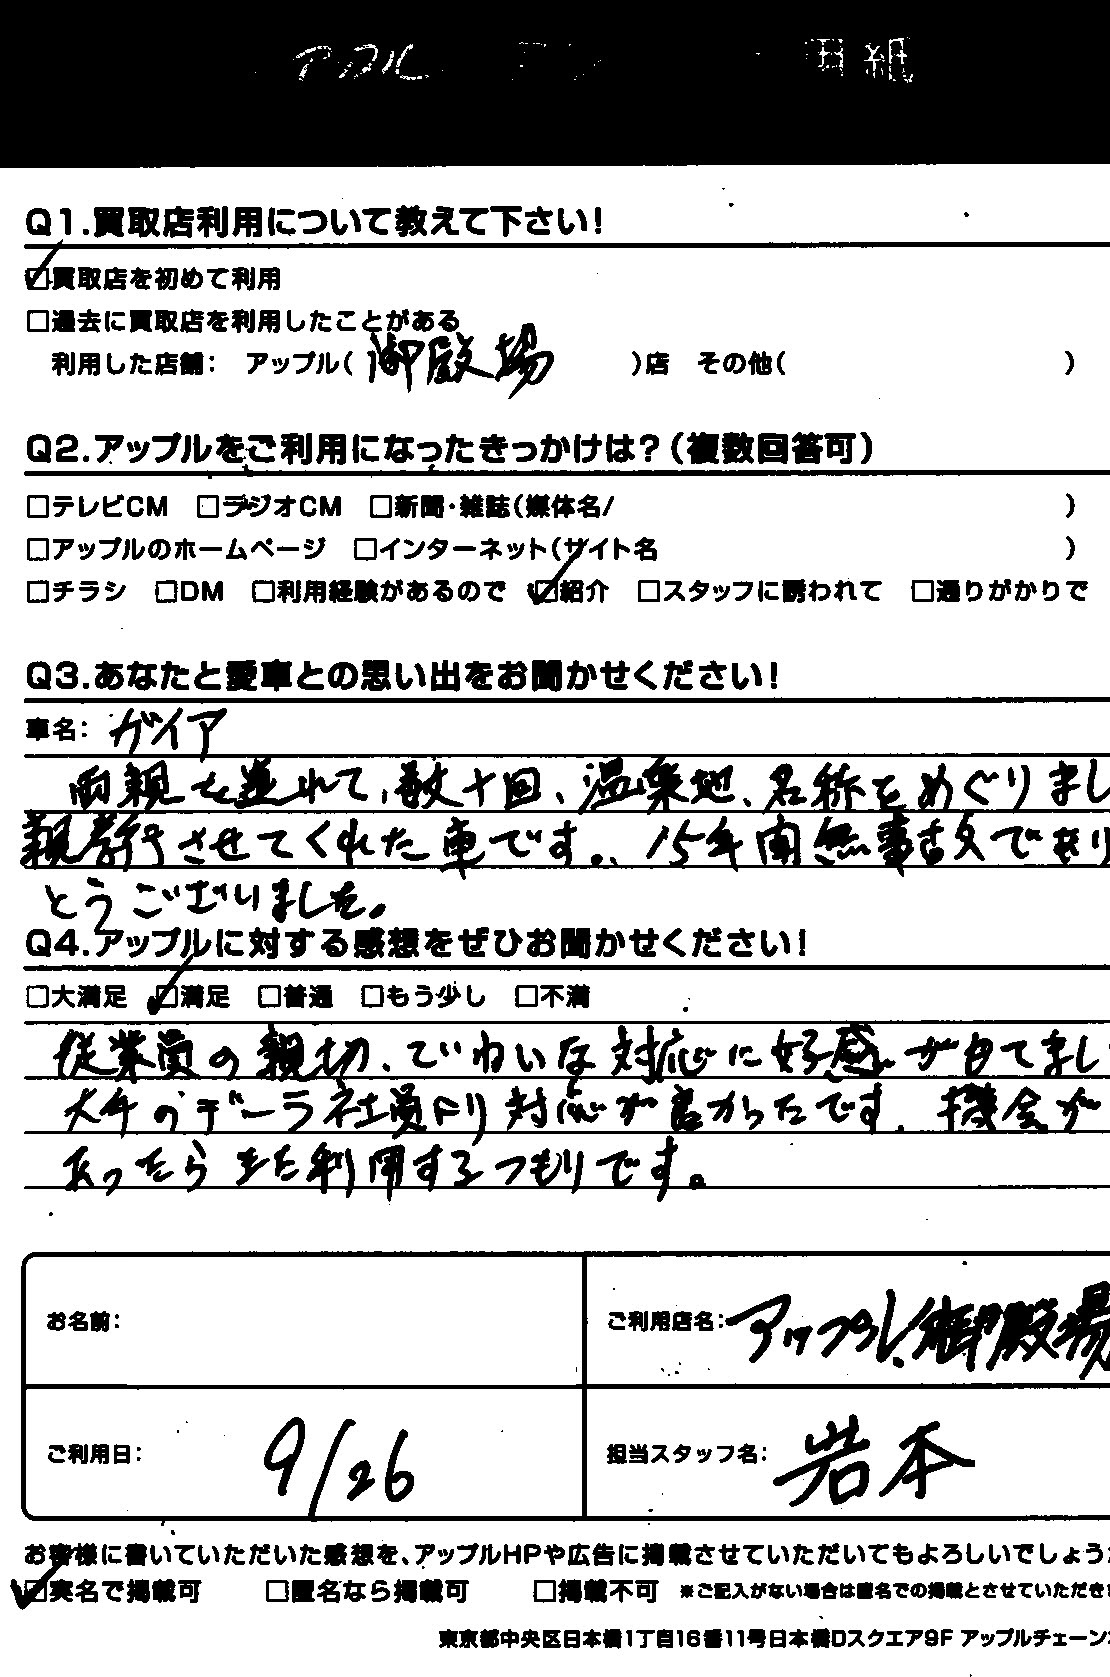 アプル 用紙
Q1.買取店利用について教えて下さい!
☑買取店を初めて利用
□過去に買取店を利用したことがある
利用した店舗: アップル(御殿場 )店 その他( )
Q2.アップルをご利用になったきっかけは?(複数回答可)
□テレビCM □ラジオCM □新聞・雑誌(媒体名/ )
□アップルのホームページ □インターネット(サイト名 )
□チラシ □DM □利用経験があるので ☑紹介 □スタッフに誘われて □通りがかりで
Q3.あなたと愛車との思い出をお聞かせください!
車名: ガイア
両親を連れて、数十回、温泉地、名称をめぐりまし
親孝行させてくれた車です。、15年間無事故で あり
とうございました。
Q4.アップルに対する感想をぜひお聞かせください!
□大満足 ☑満足 □普通 □もう少し □不満
従業員の親切、ていねいな対応に好感がもてまし
大手のデーラ社員より対応が良かったです。機会が
あったらまた利用するつもりです。
お名前:
ご利用店名: アップル御殿場
ご利用日: 9/26
担当スタッフ名: 岩本
お客様に書いていただいた感想を、アップルHPや広告に掲載させていただいてもよろしいでしょう
☑実名で掲載可 □匿名なら掲載可 □掲載不可 ※ご記入がない場合は匿名での掲載とさせていただき
東京都中央区日本橋1丁目16番11号日本橋Dスクエア9F アップルチェーン